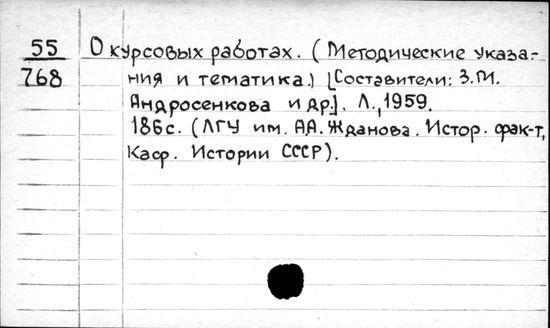 55 О курсовых работах. (Методические указа-
768 ния и тематика.) [Составители: З.М.
Андросенкова и др.]. Л., 1959.
186с. (ЛГУ им. А.А. Жданова. Истор. фак-т,
Каф. Истории СССР).